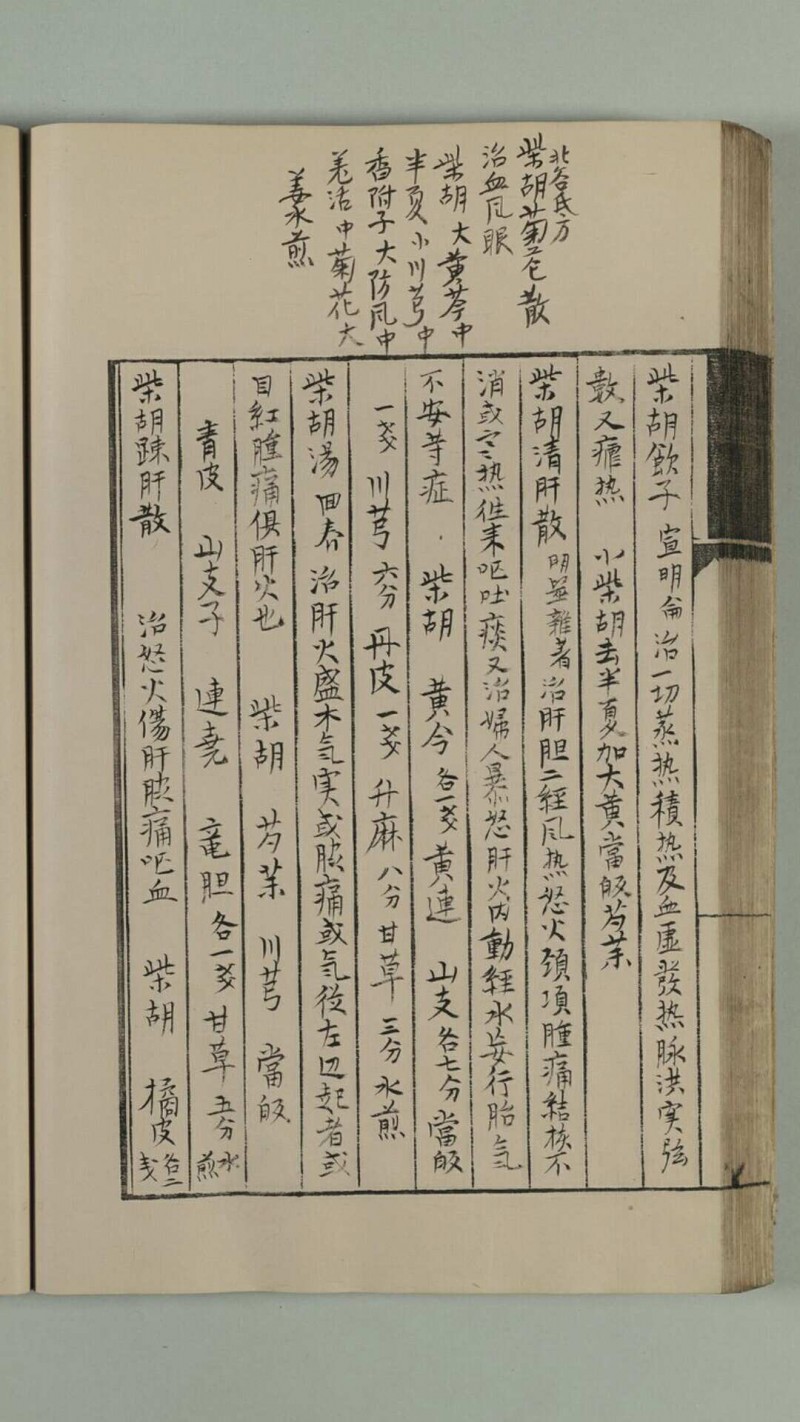 北谷氏方
柴胡菊苍散
治血凨眼
柴胡大黄芩中
半夏小川芎中
香附子大防凨中
羌活中菊花大
姜水煎
柴胡飲子 宣明侖 治一切蒸热積热及血虚發热脉洪実弦
数又瘧热 小柴胡去半夏加大黄當皈芍茱
柴胡清肝散 明医雜著 治肝胆二經凨热怒火頚項腫痛結核不
消或寒热徃来呕吐痰又治婦人暴怒肝火内動經水妄行胎气
不安等症 柴胡 黄今各一戔 黄連 山支各七分 當皈
一戔 川芎六分 丹皮一戔 升麻八分 甘草三分 水煎
柴胡湯 回春 治肝火盛木气実或脇痛或气從左辺起者或
目紅腫痛俱肝火也 柴胡 芍茱 川芎 當皈
青皮 山支子 連堯 竜胆各一戔 甘草五分 水煎
柴胡踈肝散 治怒火傷肝脇痛呕血 柴胡 橘皮各二戔